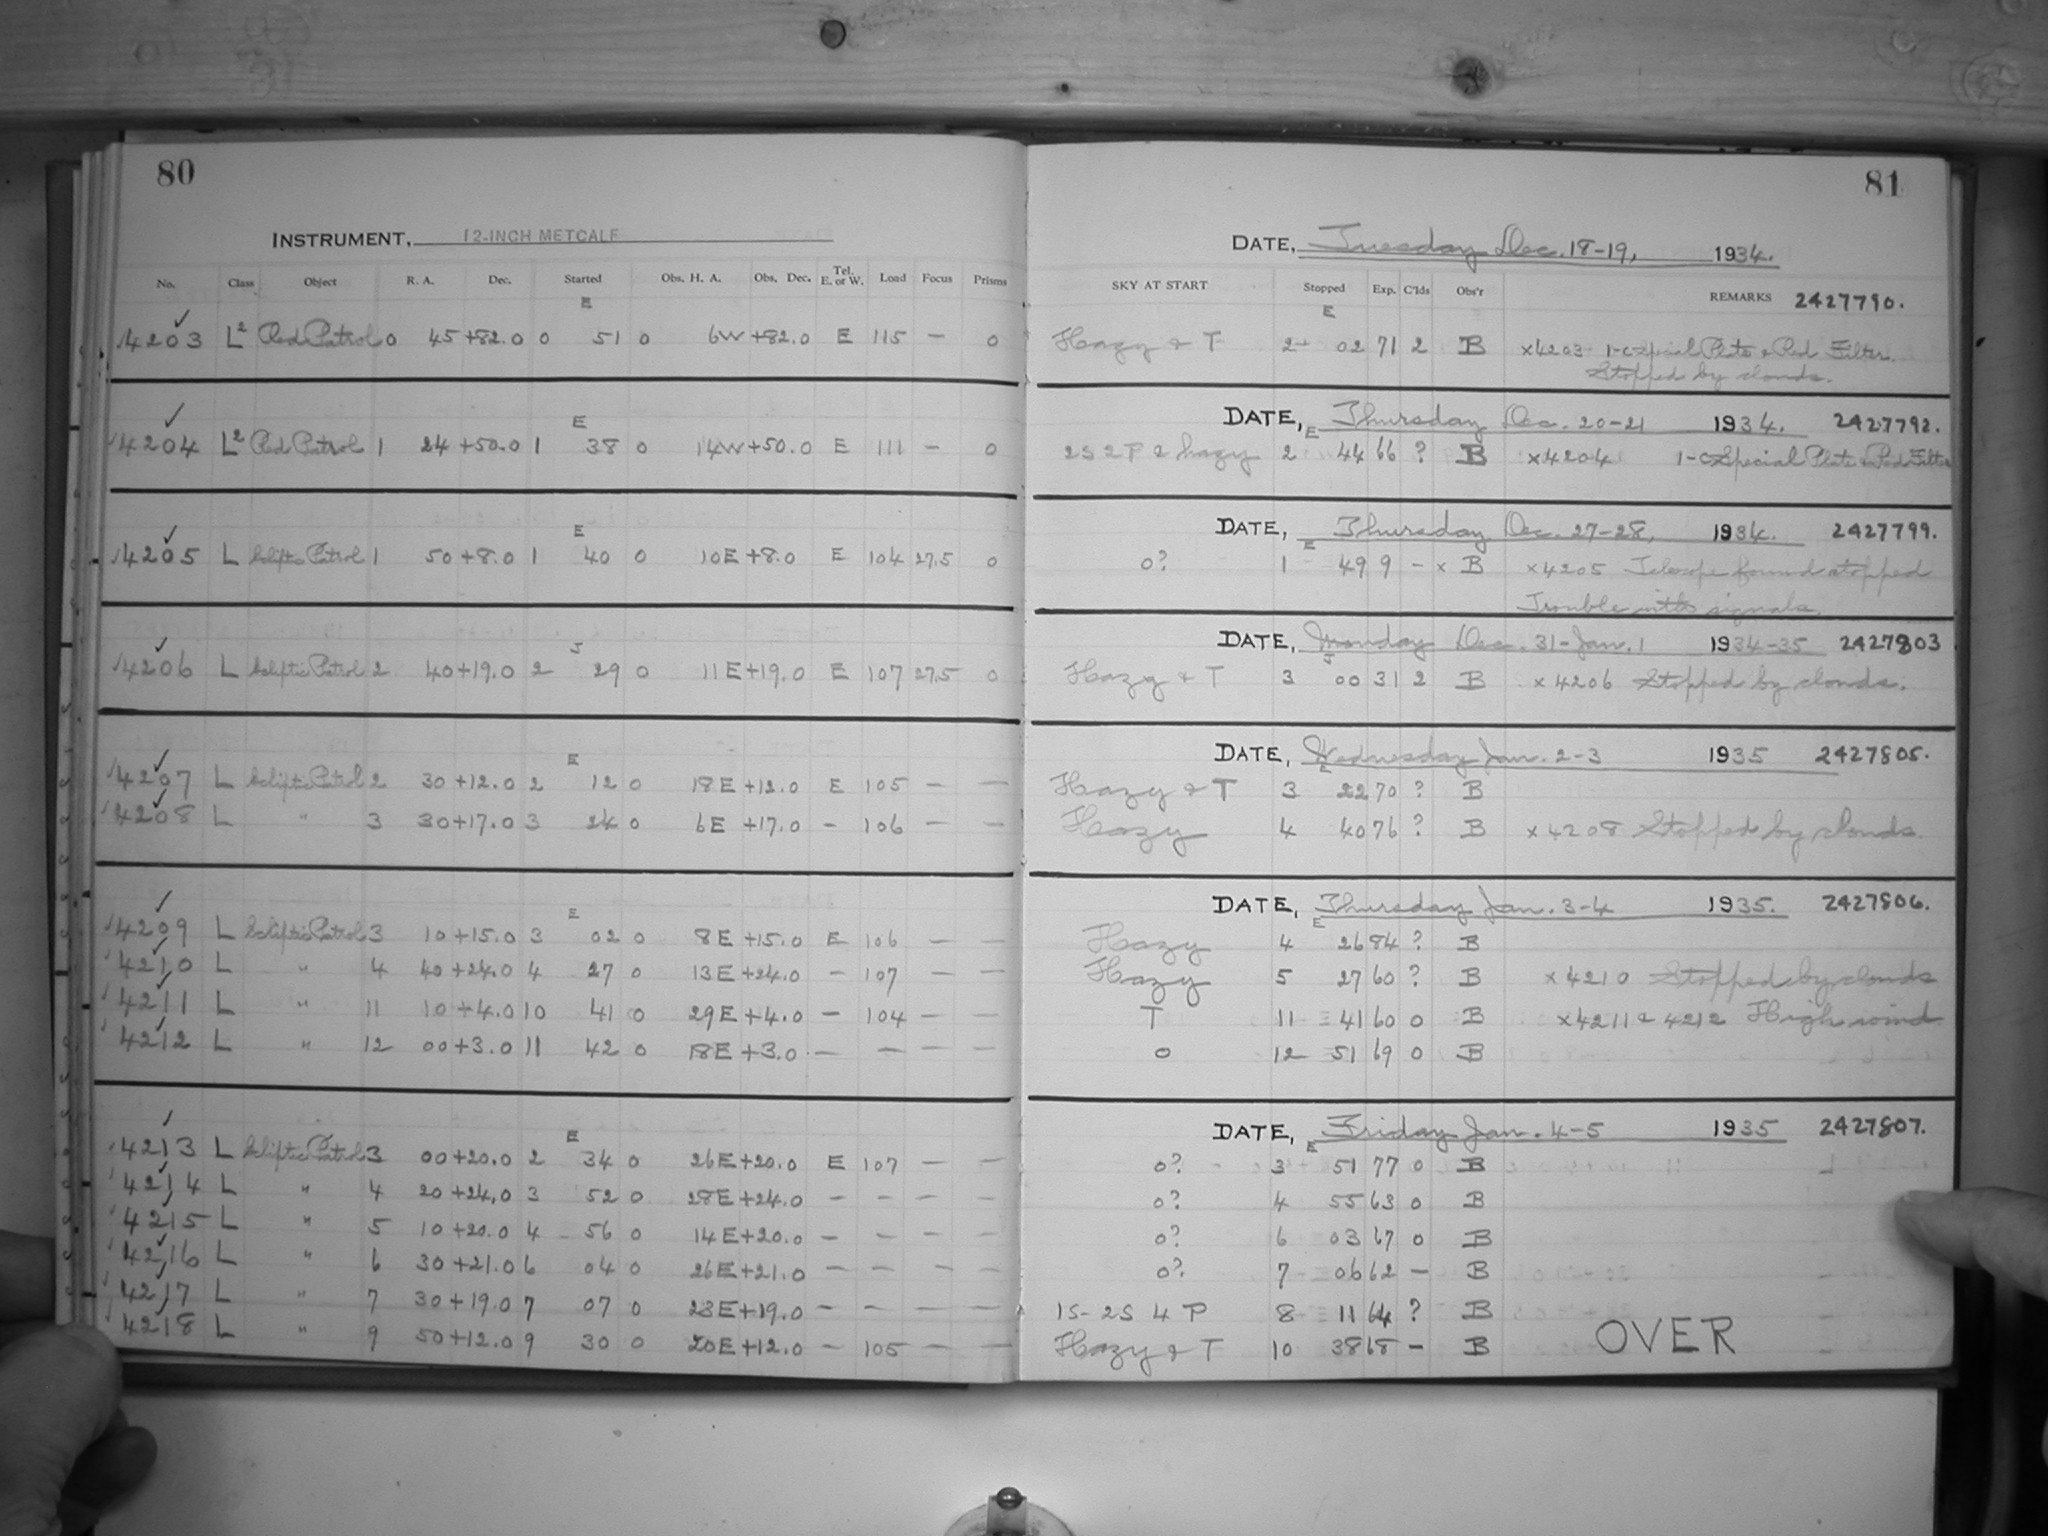 80
INSTRUMENT, 12-INCH METCALF
No. Class Object R. A. Dec. Started Obs. H. A. Obs. Dec. Tel. E. or W. Load Focus Prisms
E
14203 L² Red Patrol 0 45 +82.0 0 51 0 6W +82.0 E 115 — 0
E
14204 L² Red Patrol 1 24 +50.0 1 38 0 14W +50.0 E 111 — 0
E
14205 L Ecliptic Patrol 1 50 +8.0 1 40 0 10E +8.0 E 104 27.5 0
J
14206 L Ecliptic Patrol 2 40 +19.0 2 29 0 11E +19.0 E 107 27.5 0
E
14207 L Ecliptic Patrol 2 30 +12.0 2 12 0 18E +12.0 E 105 — —
14208 L " 3 30 +17.0 3 24 0 6E +17.0 – 106 — —
E
14209 L Ecliptic Patrol 3 10 +15.0 3 02 0 8E +15.0 E 106 — —
14210 L " 4 40 +24.0 4 27 0 13E +24.0 – 107 — —
14211 L " 11 10 +4.0 10 41 0 29E +4.0 – 104 — —
14212 L " 12 00 +3.0 11 42 0 18E +3.0 — — — —
E
14213 L Ecliptic Patrol 3 00 +20.0 2 34 0 26E +20.0 E 107 — —
14214 L " 4 20 +24.0 3 52 0 28E +24.0 – – — —
14215 L " 5 10 +20.0 4 56 0 14E +20.0 – – — —
14216 L " 6 30 +21.0 6 04 0 26E +21.0 – – — —
14217 L " 7 30 +19.0 7 07 0 23E +19.0 – – — —
14218 L " 9 50 +12.0 9 30 0 20E +12.0 – 105 — —
81
DATE, Tuesday Dec. 18-19, 1934.
SKY AT START Stopped Exp. C'lds Obs'r REMARKS 2427790.
E
Hazy & T 2 02 71 2 B x4203 1-c Special Plate & Red Filter.
Stopped by clouds.
DATE, Thursday Dec. 20-21 1934. 2427792.
E
2S 2P & hazy 2 44 66 ? B x4204 1-c Special Plate & Red Filter
DATE, Thursday Dec. 27-28, 1934. 2427799.
E
0? 1 49 9 – x B x4205 Telescope found stopped
Trouble with signals.
DATE, Monday Dec. 31-Jan. 1 1934-35 2427803
J
Hazy & T 3 00 31 2 B x4206 Stopped by clouds.
DATE, Wednesday Jan. 2-3 1935 2427805.
E
Hazy & T 3 22 70 ? B
Hazy 4 40 76 ? B x4208 Stopped by clouds.
DATE, Thursday Jan. 3-4 1935. 2427806.
E
Hazy 4 26 84 ? B
Hazy 5 27 60 ? B x4210 Stopped by clouds
T 11 41 60 0 B x4211 & 4212 High wind
0 12 51 69 0 B
DATE, Friday Jan. 4-5 1935 2427807.
E
0? 3 51 77 0 B
0? 4 55 63 0 B
0? 6 03 67 0 B
0? 7 06 62 – B
1S-2S 4 P 8 11 64 ? B
Hazy & T 10 38 68 – B
OVER